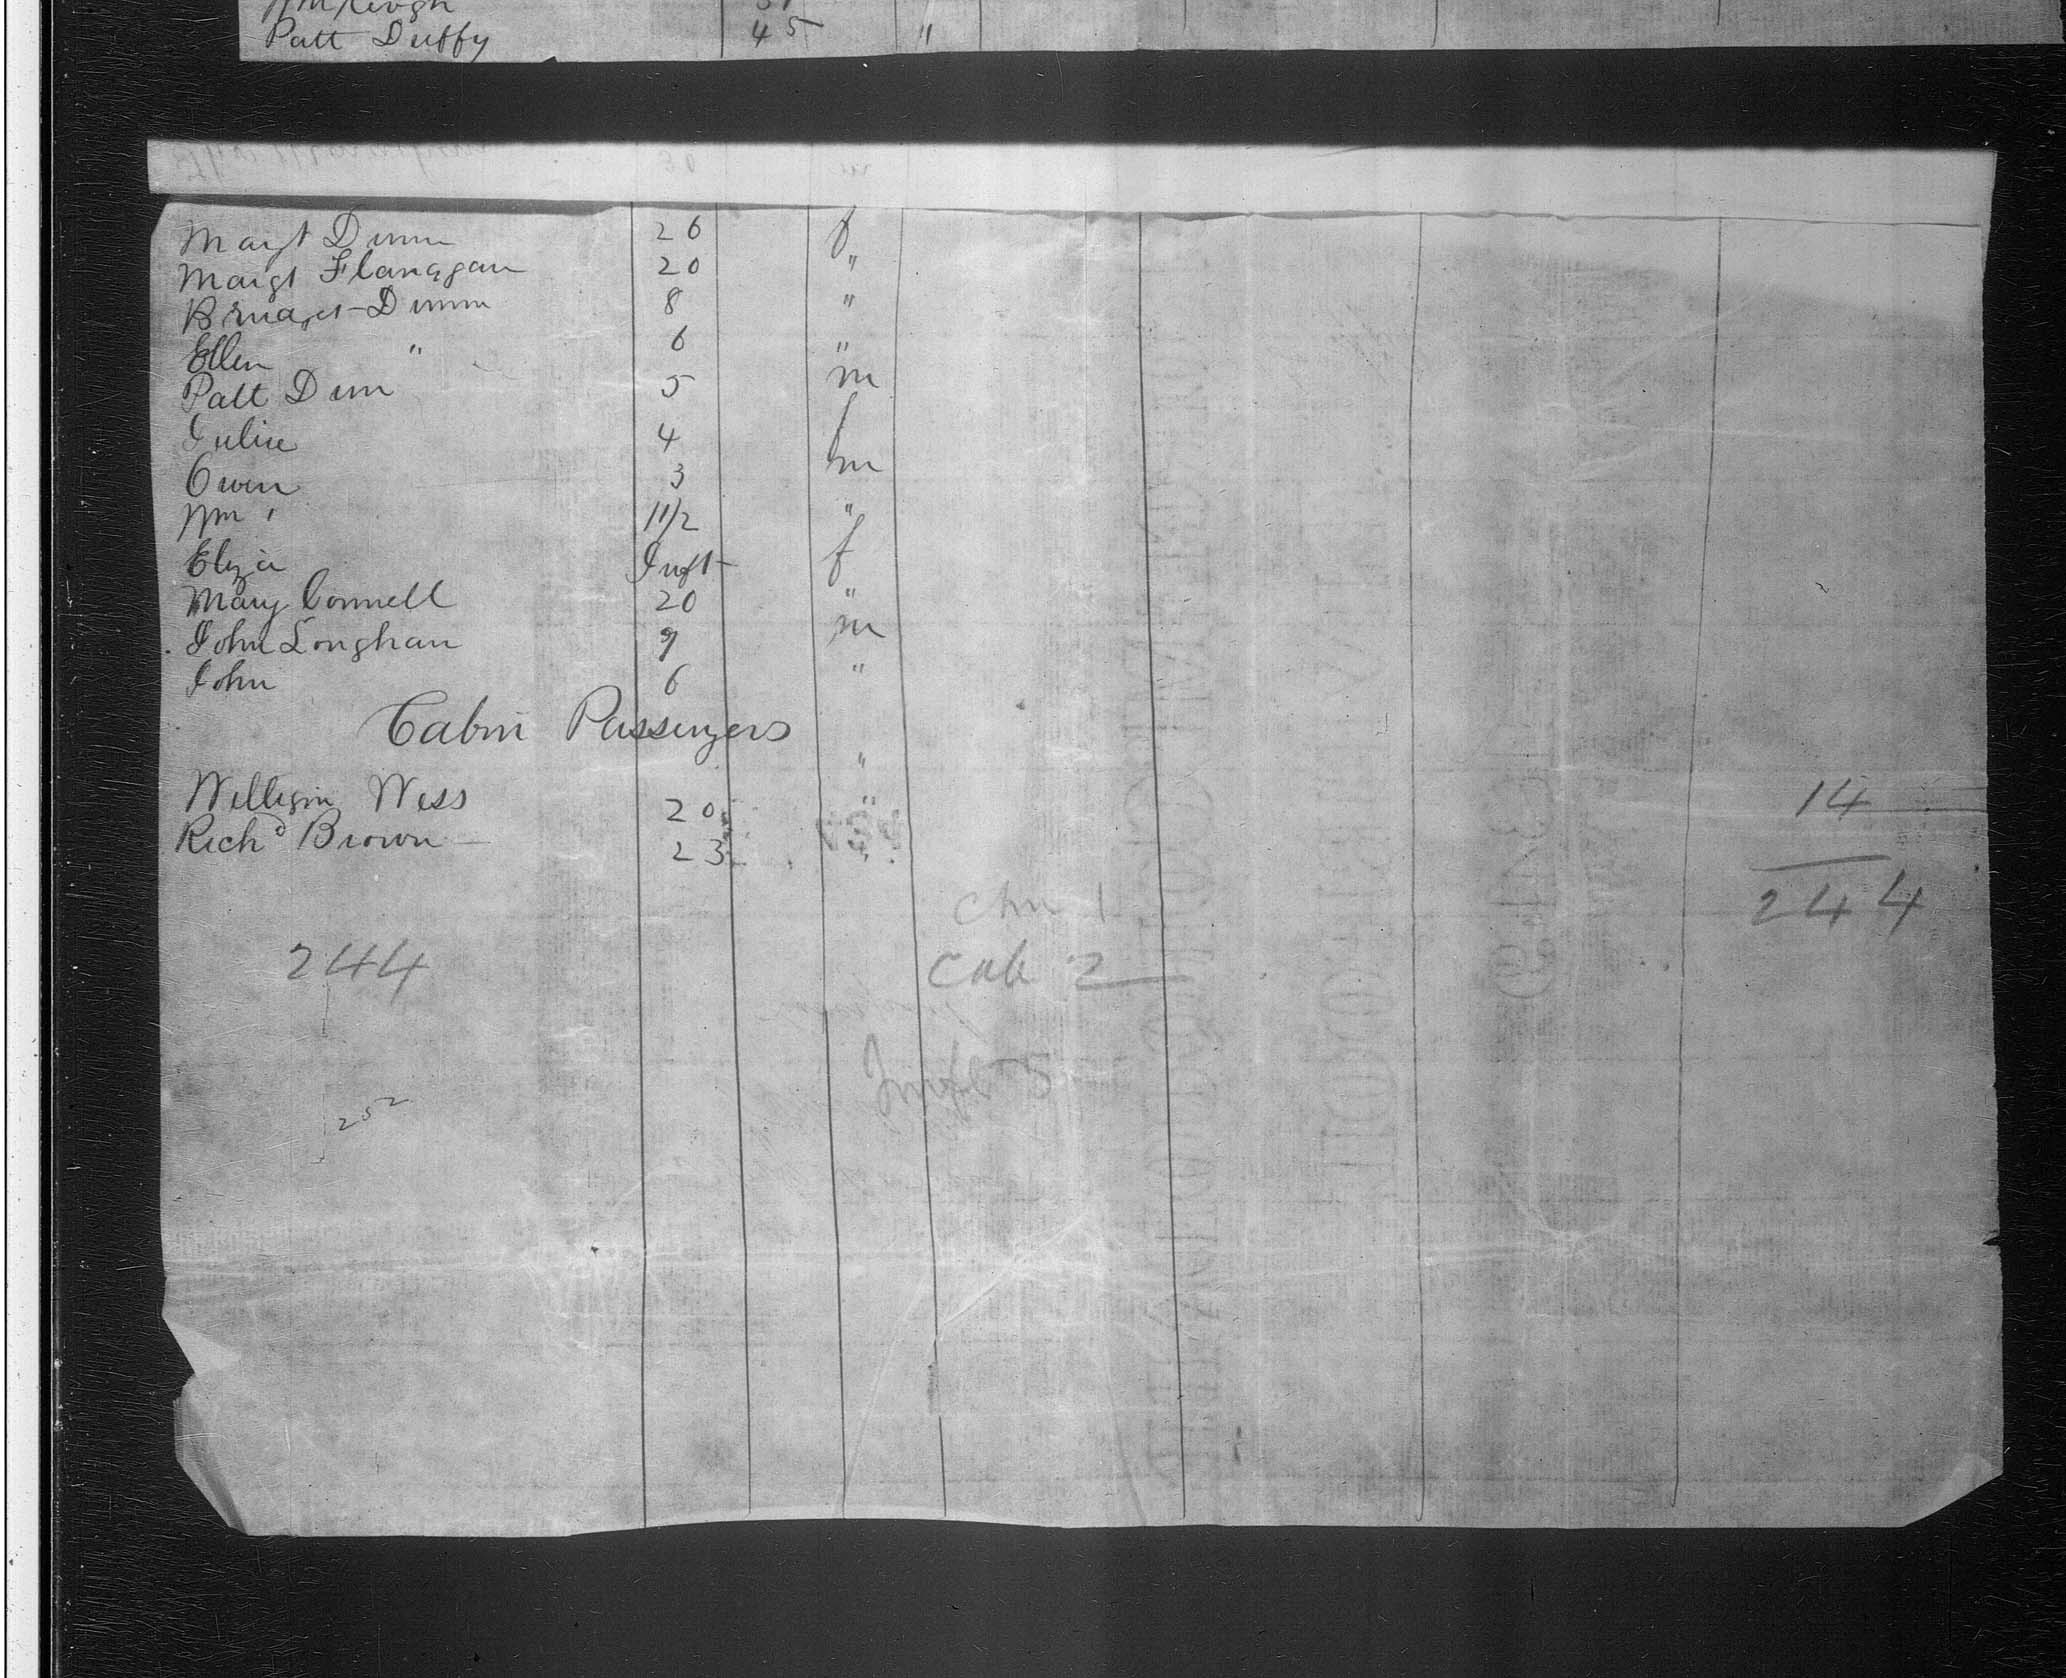 Patt Duffy 45 "
Margt Dunn 26 f
Margt Flanagan 20 "
Bridget Dunn 8 "
Ellen " 6 "
Patt Dunn 5 m
Julia 4 f
Owen 3 m
Wm 1 1/2 "
Eliza Inft f
Mary Connell 20 "
John Longhan 9 m
John 6 "
Cabin Passengers
"
William Wess 20 "
Richd Brown 23 "
14
244
244
Cab 2
Inft 5
252